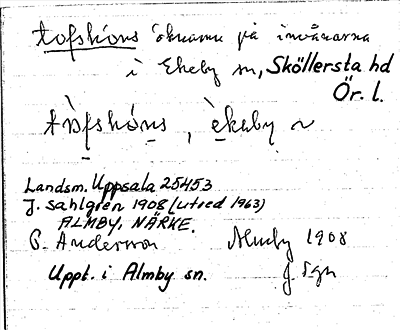 tofshöns öknamn på invånarna
i Ekeby sn, Sköllersta hd
Ör. l.
tòfshö́ns, èkeby ~
Landsm. Uppsala 25453
J. Sahlgren 1908 (utred 1963)
ALMBY, NÄRKE.
P. Andersson Almby 1908
Uppt. i Almby sn. J. Sgn